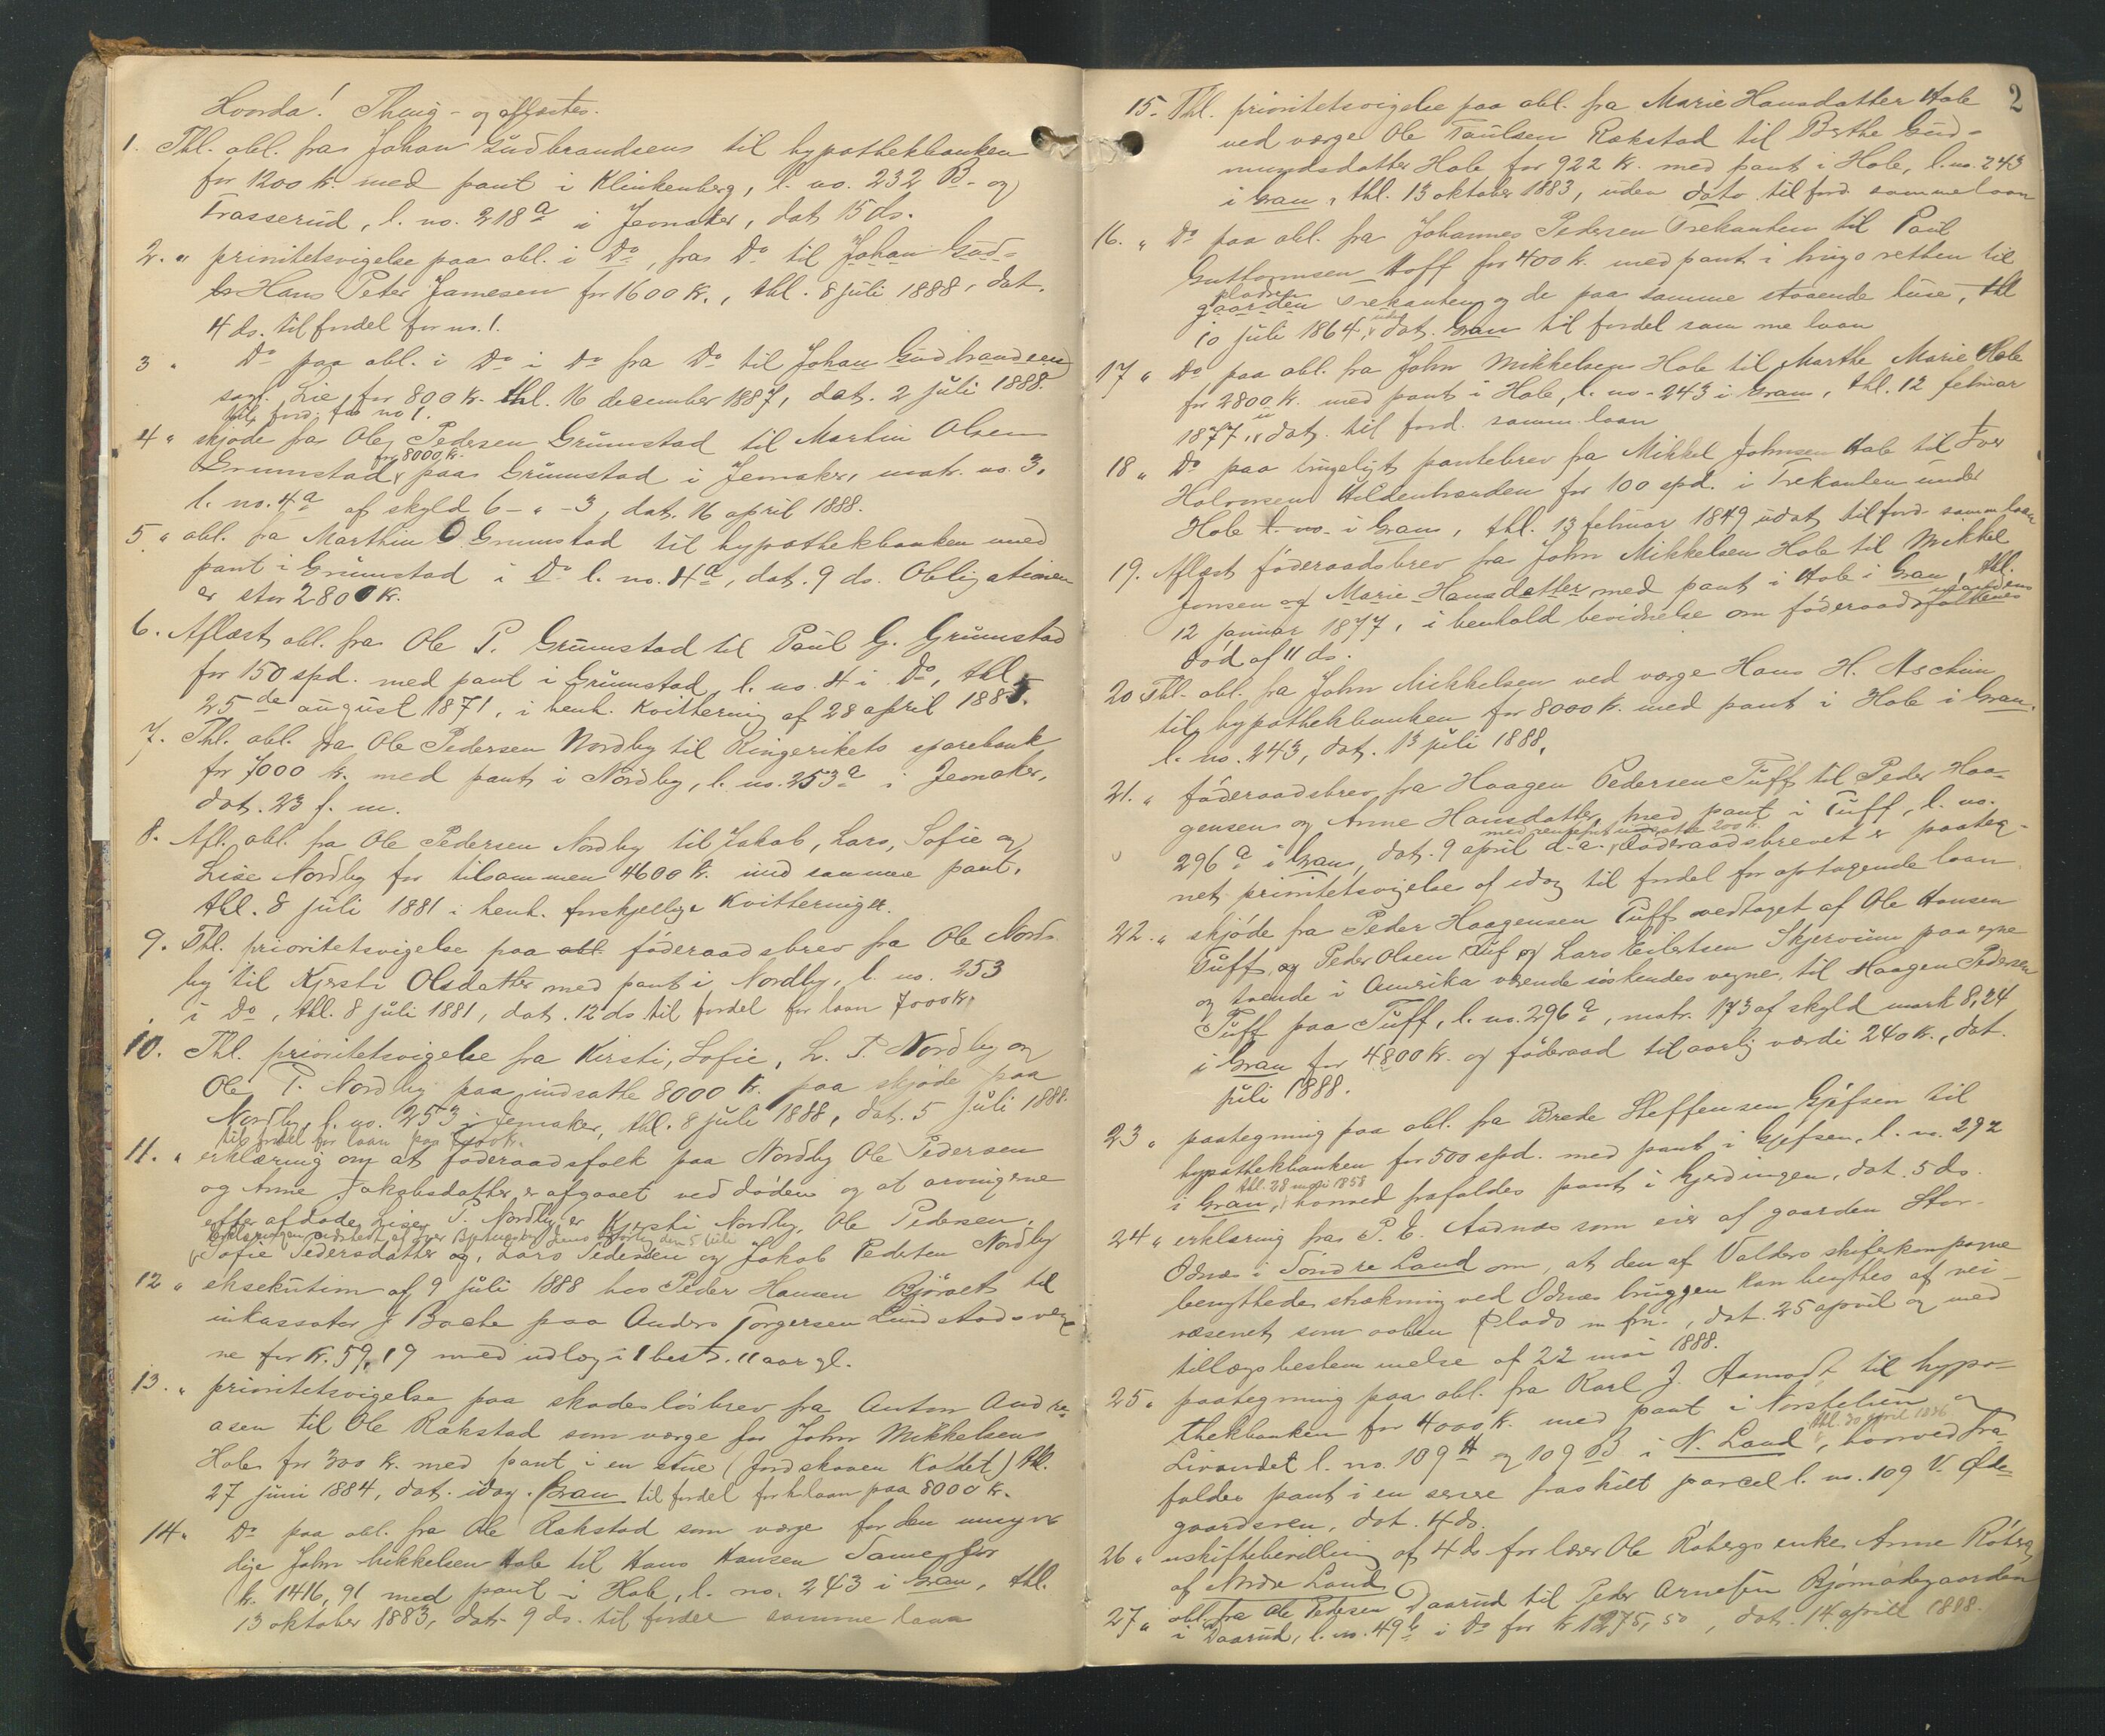 Hvorda! Thing- og afløstes.
1. Thl. obl. fra Johan Gudbrandsen til hypothekbanken
for 1200 kr. med pant i Klinkenberg, l. no. 232 B- og
Trasserud, l. no. 218a i Jevnaker, dat 15 ds.
2. " prioritetsvigelse paa obl. i Do, fra Do til Johan Gud-
Hans Peter Jamesen for 1600 kr., thl. 8 juli 1888, dat.
4 ds. til fordel for no. 1.
3 " Do paa obl. i Do i Do fra Do til Johan Gudbrandsen
Lie, for 800 kr. thl. 16 december 1887, dat. 2 juli 1888.
til ford. for no 1.
4 " skjøde fra Ole Pedersen Grúmstad til Martin Olsen
Grumstad, for 8000 kr. paa Grúmstad i Jevnaker, matr. no. 3,
l. no. 4a af skyld 6 - " - 3, dat. 16 april 1888.
5 " obl. fra Marthin O Grumstad til hypothekbanken med
pant i Grúmstad i Do l. no. 4a, dat. 9 ds. Obligationen
er stor 2800 kr.
6. Aflæst obl. fra Ole P. Grúmstad til Paul G. Grúmstad
for 150 spd. med pant i Grúmstad, l. no. 4 i Do, thl
25de august 1871, i henh. kvittering af 28 april 1885.
7. Thl. obl. fra Ole Pedersen Nordby til Ringerikets sparebank
for 7000 kr. med pant i Nordby, l. no. 253a i Jevnaker,
dat. 23 f. m.
8. Afl. obl. fra Ole Pedersen Nordby til Jakob, Lars, Sofie og
Lise Nordby for tilsammen 4600 kr. med samme pant,
thl. 8 juli 1881 i henh. forskjellige kvitteringer.
9. Thl. prioritetsvigelse paa obl. føderaadsbrev fra Ole Nord-
by til Kjersti Olsdatter med pant i Nordby, l. no. 253
i Do, thl. 8 juli 1881, dat. 12 ds til fordel for laan 7000 kr.
10. Thl. prioritetsvigelse fra Kirsti, Sofie, L. P. Nordby og
Ole P. Nordby paa indsatte 8000 kr. paa skjøde paa
Nordby, l. no. 253 i Jevnaker, thl. 8 juli 1888, dat. 5 juli 1888.
til fordel for laan paa 7000 kr.
11. " erklæring om at føderaadsfolk paa Nordby Ole Pedersen
og Anne Jakobsdatter er afgaaet ved døden og at arvingerne
efter afdøde Lise P. Nordby er Kjersti Nordby, Ole Pedersen,
Sofie Pedersdatter og, Lars Pedersen og Jakob Pedersen Nordby
12 " eksekution af 9 juli 1888 hos Peder Hansen til
inkassator J Bache paa Anders Torgersen Lundstads veg-
ne for kr. 59,19 med udlæg i 1 hest, 11 aar gl.
13. " prioritetsvigelse paa skadesløsbrev fra Anton Andre-
asen til Ole Rækstad som værge for John Mikkelsen
Hole for 300 kr. med pant i en stue (Jordskaven Koltet) thl.
27 juni 1884, dat. idag. Gran til fordel for laan paa 8000 kr.
14 " Do paa obl. fra Ole Rækstad som værge for den umyn-
dige John Mikkelsen Hole til Hans Hansen for
kr. 1416,91 med pant i Hole, l. no. 243 i Gran, thl.
13 oktober 1883, dat. 9 ds. til fordel samme laan
2
15. Thl. prioritetsvigelse paa obl. fra Marie Hansdatter Hole
ved værge Ole Paulsen Rækstad til Berthe Gud-
mundsdatter Hole for 922 kr. med pant i Hole, l. no. 243
i Gran, thl. 13 oktober 1883, uden dato til ford. samme laan
16. " Do paa obl. fra Johannes Pedersen Trekanten til Paul
Guthormsen Hoff for 400 kr. med pant i brugsretten til
pladsen gaarden Trekanten og de paa samme staaende huse, thl
10 juli 1864, udat. Gran til fordel samme laan
17 " Do paa obl. fra John Mikkelsen Hole til Marthe Marie Hole
for 2800 kr. med pant i Hole, l. no. 243 i Gran, thl. 12 februar
1877, udat. til ford. samm. laan
18 " Do paa tingeligt pantebrev fra Mikkel Johnsen Hole til Iver
Halvorsen for 100 spd. i Trekanten under
Hole l. no. i Gran, thl. 13 februar 1849 udat til ford. samm laan
19. Aflæst føderaadsbrev fra John Mikkelsen Hole til Mikkel
Jonsen og Marie Hansdatter med pant i Hole i Gran, thl.
12 januar 1877, i henhold bevidnelse om føderaads
død af 11 ds.
20 Thl. obl. fra John Mikkelsen ved værge Hans H. Aschim
til hypothekbanken for 8000 kr. med pant i Hole i Gran,
l. no. 243, dat. 13 juli 1888.
21. " føderaadsbrev fra Haagen Pedersen Tuff til Peder Haa-
gensen og Anne Hansdatter med pant i Tuff, l. no.
296a i Gran, dat. 9 april d. a., føderaadsbrevet er paateg-
net prioritetsvigelse af idag til fordel for optagende laan
22. " skjøde fra Peder Haagensen Tuff vedtaget af Ole Hansen
Tuff, og Peder Olsen Tuf og Lars Eilertsen Skjervum paa egne
og tvende i Amerika værende søskendes vegne, til Haagen Pedersen
Tuff paa Tuff, l. no. 296a, matr. 173 af skyld mark 8,24
i Gran for 4800 kr. og føderaad til aarlig værdi 240 kr., dat.
juli 1888.
23 " paategning paa obl. fra Brede Steffensen Gjefsen til
hypothekbanken for 500 spd. med pant i Gjefsen, l. no. 292
i Gran, thl. 28 mai 1858 hvorved frafaldes pant i Gjerdingen, dat. 5 ds.
24 " erklæring fra P. C. Aadnæs som eier af gaarden Stor-
Odnæs i Søndre Land om, at den af Valders skiferkompagne
benyttede strækning ved Odnæs bruggen kan benyttes af vei-
væsenet som aaben plads m. fri., dat. 25 april og med
tillægsbestemmelse af 22 mai 1888.
25 " paategning paa obl. fra Karl J. Aamodt til hypo-
thekbanken for 4000 kr. med pant i Norstelien og
l. no. 109 A og 109 B i N. Land, thl. 30 april 1886 hvorved fra-
faldes pant i en senere fraskilt parcel l. no. 109 V. Øde-
gaardsven, dat. 4 ds.
26 " uskiftebevilling af 4 ds for lærer Ole Røbergs enke Anne Røberg
af Nordre Land
27 " obl. fra Ole Pedersen Daarud til Peder Arnesen
i Daarud, l. no. 49b i Do for kr 1275,50, dat. 14 april 1888.